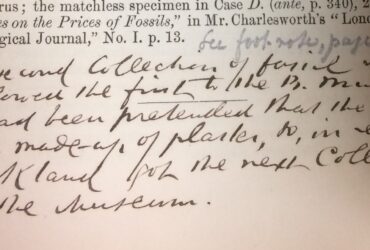 rus; the matchless specimen in Case D. (ante, p. 340), 2
es on the Prices of Fossils," in Mr. Charlesworth's "Lon
gical Journal," No. I. p. 13.
See foot note, pag
econd Collection of fossil
lowed the first to the B. Mu
had been pretended that the
made up of plaster, &, in
kland got the next Coll
the Museum.